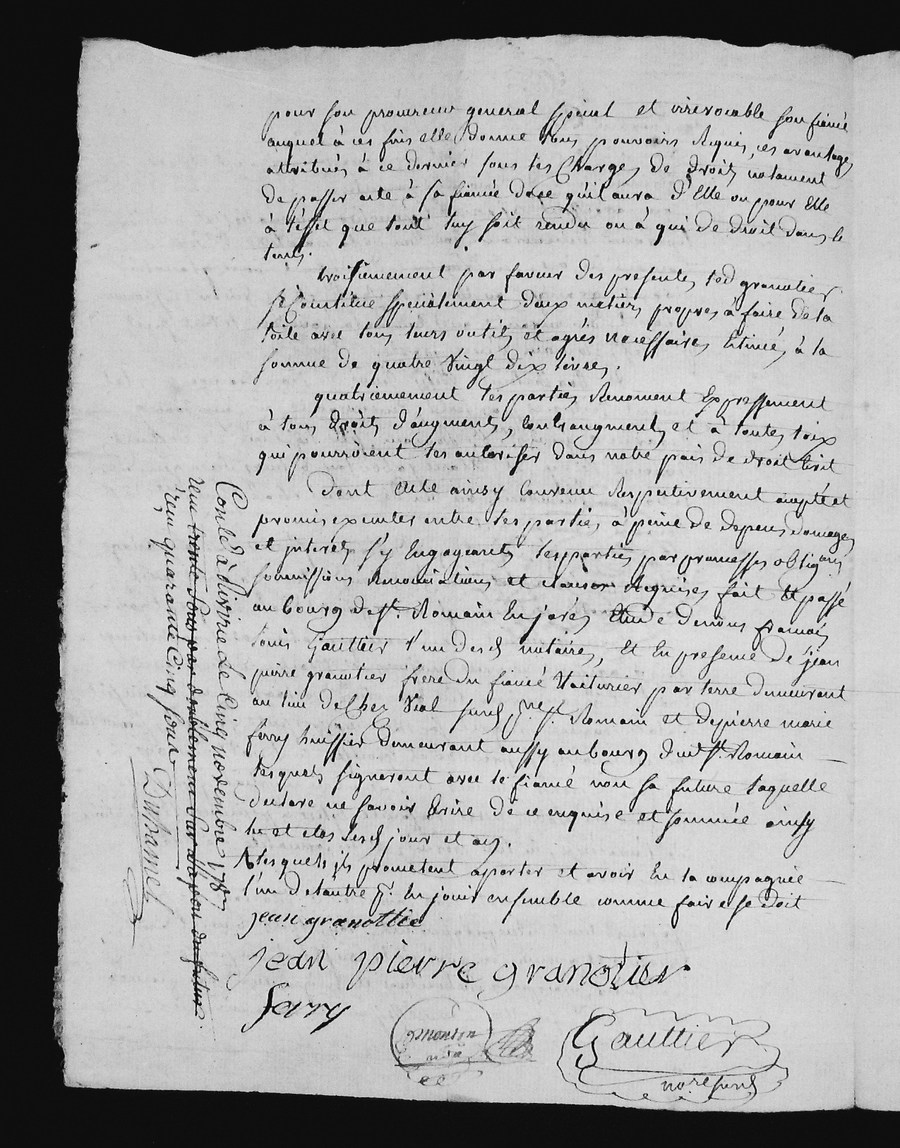 pour son procureur general special et irrevocable son fiancé
auquel à ces fins elle donne tous pouvoirs Requis, ces avantages
attribués à ce dernier sous les Charges de droit notament
de passer acte à sa fiancée de ce qu'il aura d'Elle ou pour Elle
à l'effet que tout luy soit rendu ou à qui de droit dans le
tems.
troisiemement par faveur des presentes led granotier
se Constitue specialement deux metiers propres à faire de la
toile avec tous leurs outils et agrès necessaires Estimés à la
somme de quatre Vingt dix livres.
quatriemement les parties Renoncent Expressement
à tous droits d'augments, contraugments et à toutes loix
qui pourroient les autoriser dans notre païs de droit Ecrit
Dont Eté ainsy Convenu Respectivement accepté et
promis executer entre les parties à peine de depens domages
et interets s'y Engageants les parties par promesses obligaons
soumissions Renonciations et clauses Requises fait Et passé
au bourg de St. Romain En jarés Etude de nous francois
louis Gaulttier l'un desd notaires, et En presence de jean
pierre granotier frere du fiancé Voiturier par terre demeurant
au lieu de Chez Vial sund St. Romain et de pierre marie
ferry huissier demeurant aussy au bourg dud St. Romain
lesquels signeront avec le fiancé non sa future laquelle
declare ne savoir Ecrire de ce enquise et sommée ainsy
lu et clos lesd jour et an.
lesquels ils promettent aporter et avoir En la compagnie
l'un de l'autre pr En jouir ensemble comme faire se doit
jean granottier
jean pierre granotier
ferry
monton
Gaulttier
nore sund
Conlé à Rivirie Le Cinq novembre 178
Reçu trente sous par doublement sur
Reçu quarante Cinq sous
Duhamel